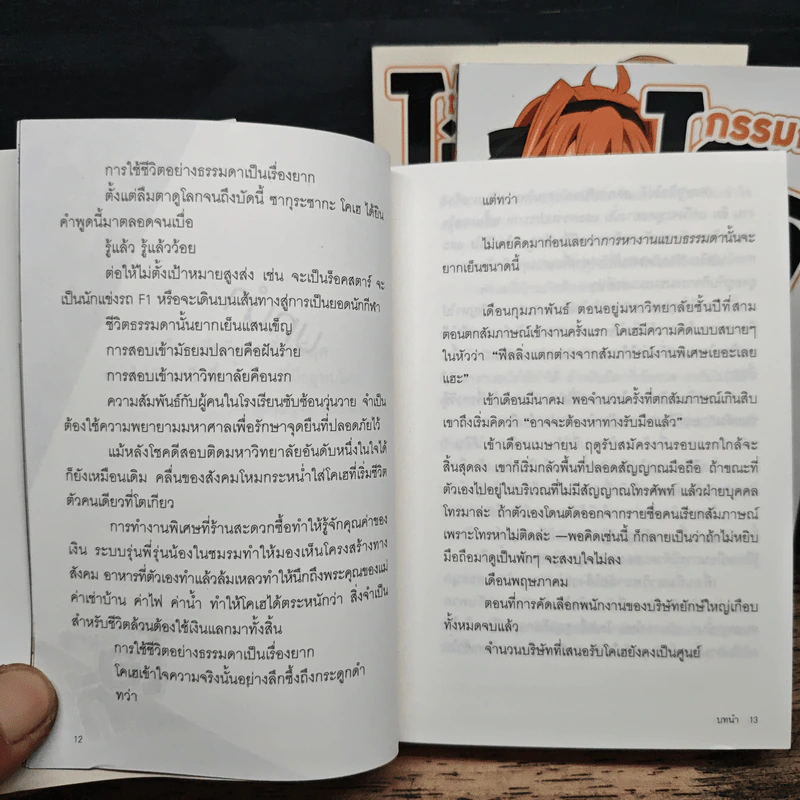 กรรมก
การใช้ชีวิตอย่างธรรมดาเป็นเรื่องยาก
ตั้งแต่ลืมตาดูโลกจนถึงบัดนี้ ซากุระซากะ โคเฮ ได้ยิน
คำพูดนี้มาตลอดจนเบื่อ
รู้แล้ว รู้แล้วว้อย
ต่อให้ไม่ตั้งเป้าหมายสูงส่ง เช่น จะเป็นร็อคสตาร์ จะ
เป็นนักแข่งรถ F1 หรือจะเดินบนเส้นทางสู่การเป็นยอดนักกีฬา
ชีวิตธรรมดานั้นยากเย็นแสนเข็ญ
การสอบเข้ามัธยมปลายคือฝันร้าย
การสอบเข้ามหาวิทยาลัยคือนรก
ความสัมพันธ์กับผู้คนในโรงเรียนซับซ้อนวุ่นวาย จำเป็น
ต้องใช้ความพยายามมหาศาลเพื่อรักษาจุดยืนที่ปลอดภัยไว้
แม้หลังโชคดีสอบติดมหาวิทยาลัยอันดับหนึ่งในใจได้
ก็ยังเหมือนเดิม คลื่นของสังคมโหมกระหน่ำใส่โคเฮที่เริ่มชีวิต
ตัวคนเดียวที่โตเกียว
การทำงานพิเศษที่ร้านสะดวกซื้อทำให้รู้จักคุณค่าของ
เงิน ระบบรุ่นพี่รุ่นน้องในชมรมทำให้มองเห็นโครงสร้างทาง
สังคม อาหารที่ตัวเองทำแล้วล้มเหลวทำให้นึกถึงพระคุณของแม่
ค่าเช่าบ้าน ค่าไฟ ค่าน้ำ ทำให้โคเฮได้ตระหนักว่า สิ่งจำเป็น
สำหรับชีวิตล้วนต้องใช้เงินแลกมาทั้งสิ้น
การใช้ชีวิตอย่างธรรมดาเป็นเรื่องยาก
โคเฮเข้าใจความจริงนั้นอย่างลึกซึ้งถึงกระดูกดำ
ทว่า
12
แต่ทว่า
ไม่เคยคิดมาก่อนเลยว่าการหางานแบบธรรมดานั้นจะ
ยากเย็นขนาดนี้
เดือนกุมภาพันธ์ ตอนอยู่มหาวิทยาลัยชั้นปีที่สาม
ตอนตกสัมภาษณ์เข้างานครั้งแรก โคเฮมีความคิดแบบสบายๆ
ในหัวว่า “ฟีลลิ่งแตกต่างจากสัมภาษณ์งานพิเศษเยอะเลย
แฮะ”
เข้าเดือนมีนาคม พอจำนวนครั้งที่ตกสัมภาษณ์เกินสิบ
เขาถึงเริ่มคิดว่า “อาจจะต้องหาทางรับมือแล้ว”
เข้าเดือนเมษายน ฤดูรับสมัครงานรอบแรกใกล้จะ
สิ้นสุดลง เขาก็เริ่มกลัวพื้นที่ปลอดสัญญาณมือถือ ถ้าขณะที่
ตัวเองไปอยู่ในบริเวณที่ไม่มีสัญญาณโทรศัพท์ แล้วฝ่ายบุคคล
โทรมาล่ะ ถ้าตัวเองโดนตัดออกจากรายชื่อคนเรียกสัมภาษณ์
เพราะโทรหาไม่ติดล่ะ —พอคิดเช่นนี้ ก็กลายเป็นว่าถ้าไม่หยิบ
มือถือมาดูเป็นพักๆ จะสงบใจไม่ลง
เดือนพฤษภาคม
ตอนที่การคัดเลือกพนักงานของบริษัทยักษ์ใหญ่เกือบ
ทั้งหมดจบแล้ว
จำนวนบริษัทที่เสนอรับโคเฮยังคงเป็นศูนย์
บทนำ 13